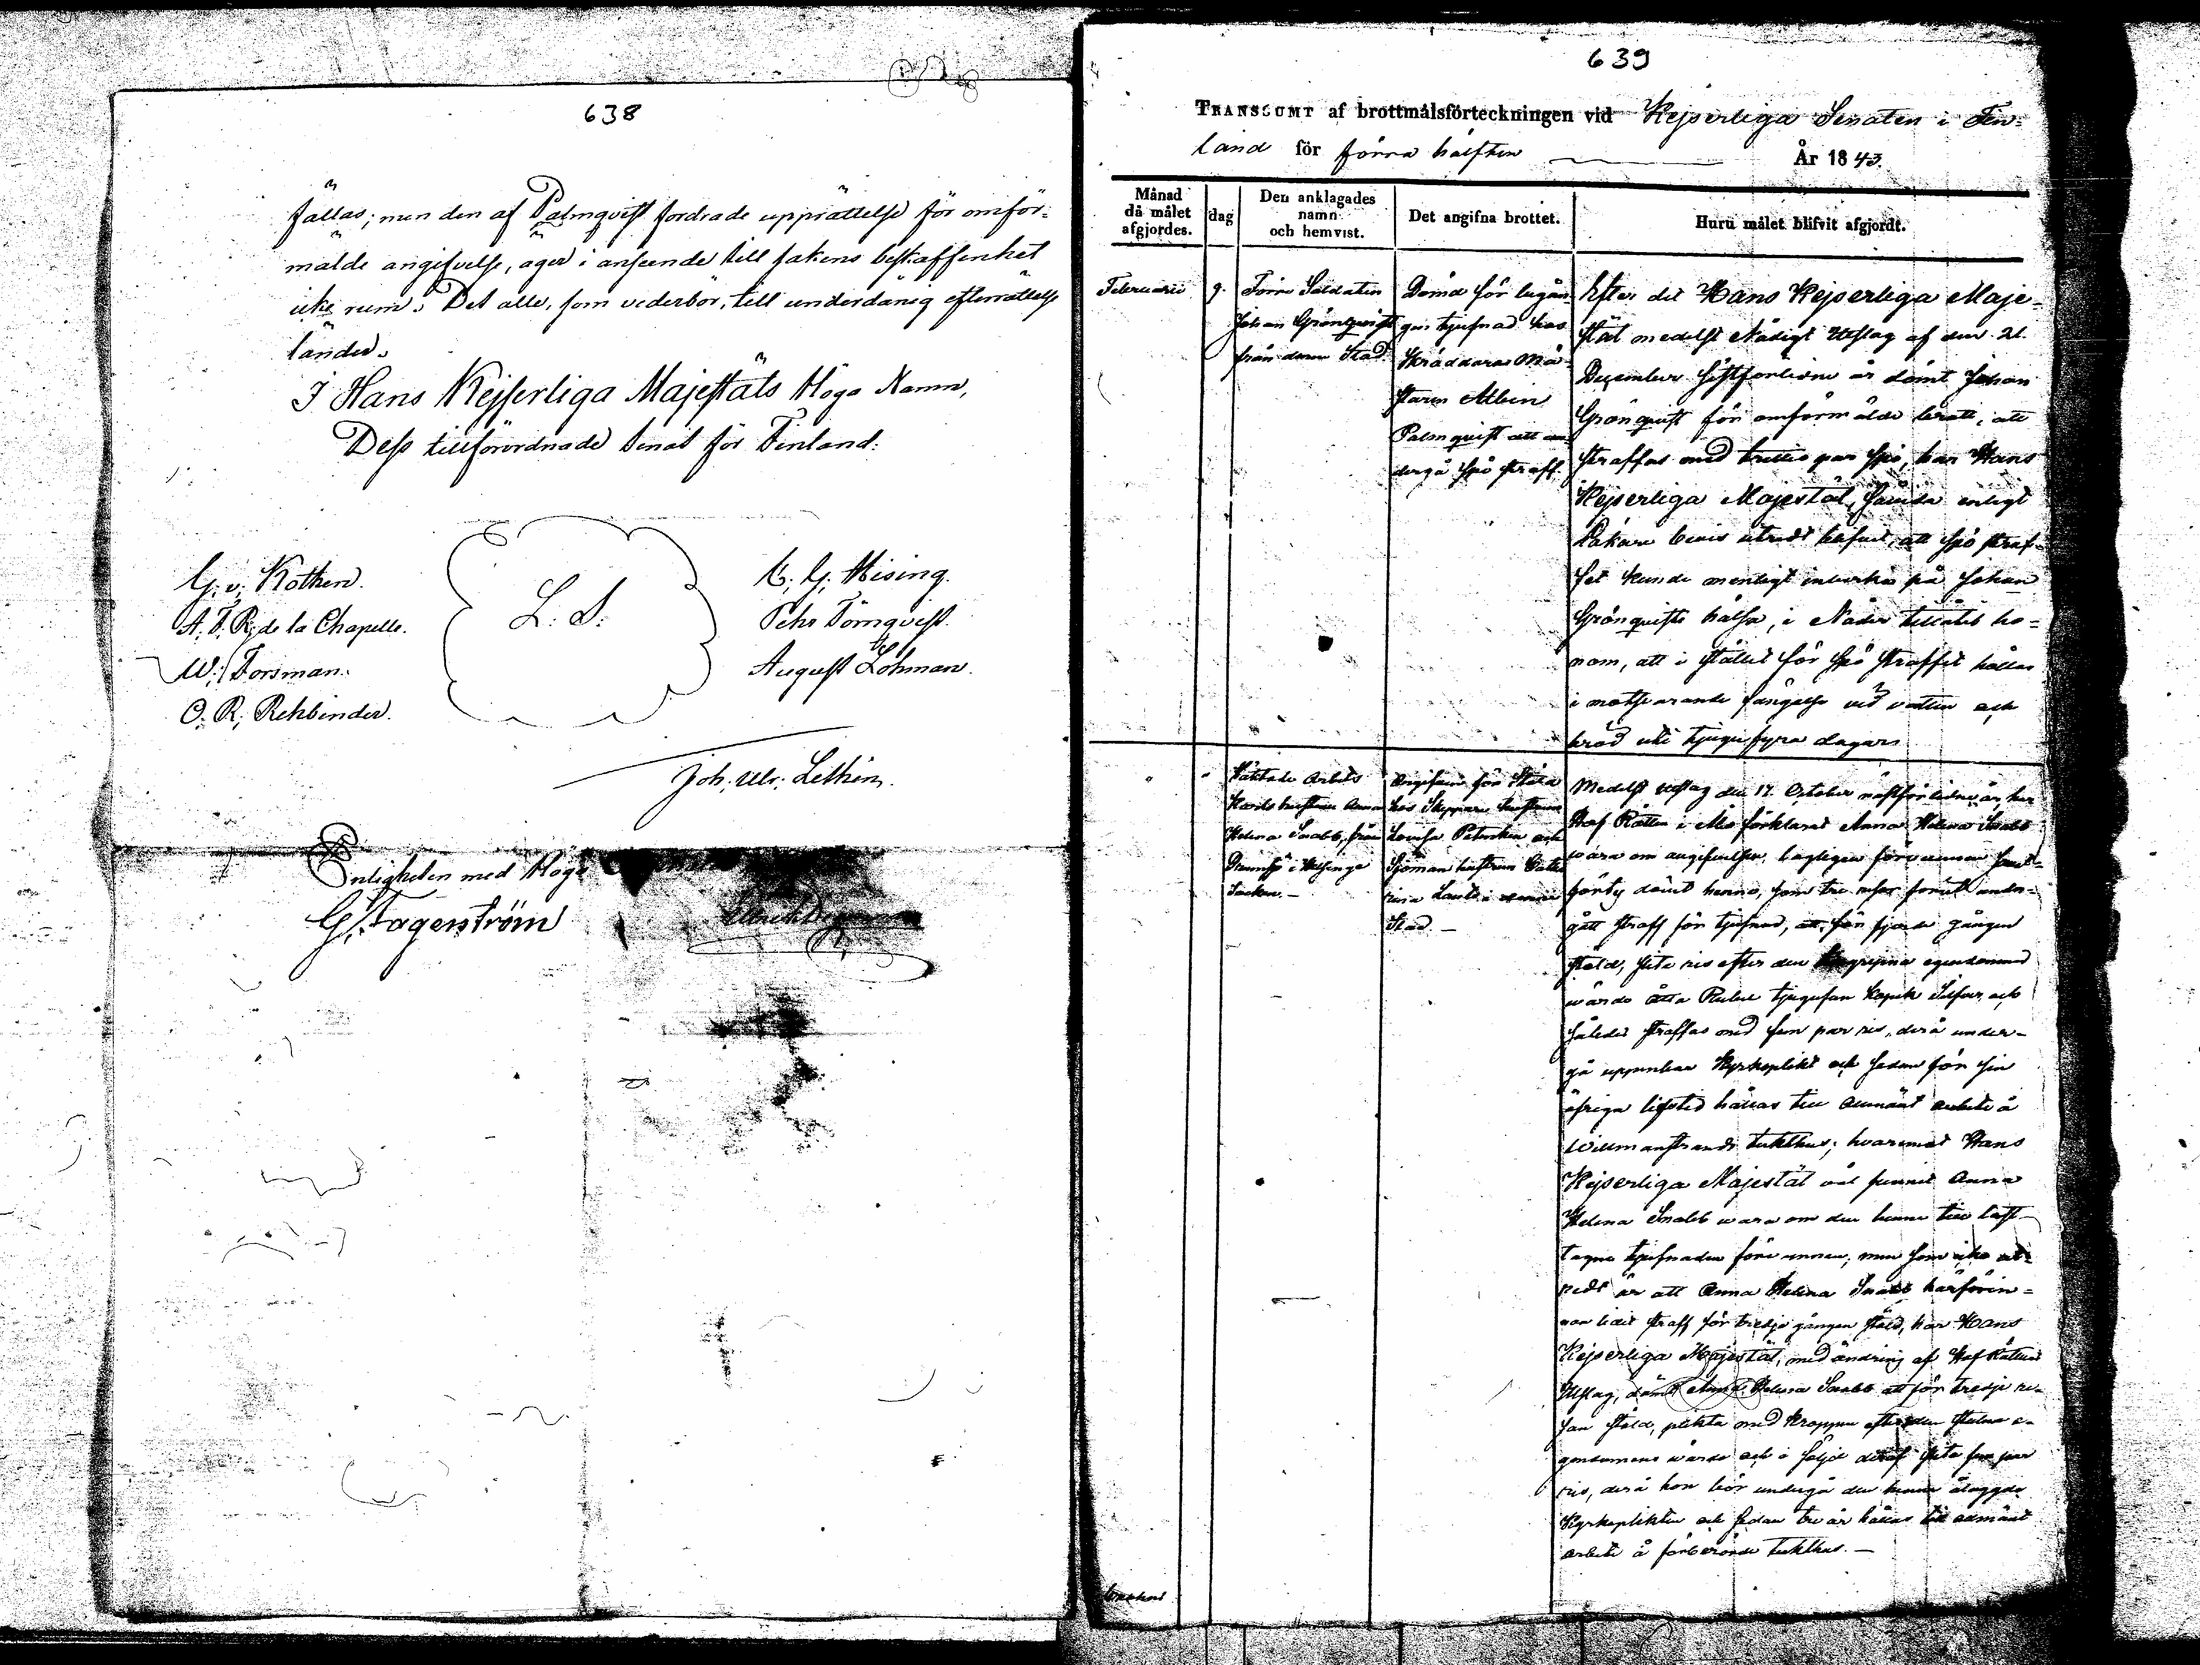 638
fällas; men den af Palmqvist fordrade upprättelse för omför-
mälde angifvelse, äger i anseende till sakens beskaffenhet
icke rum. Det alle, som vederbör, till underdånig efterrättelse
länder.
I Hans Kejserliga Majestäts Höga Namn,
Dess tillförordnade Senat för Finland:
G. v. Kothen.
A. F. R. de la Chapelle.
W. Forsman.
O. R. Rehbinder.
L. S.
C. G. Hising.
Pehr Törnqvist.
August Lohman.
Joh: Ulr: Lethin.
Enligheten med Höga
G. Fagerström
639
TRANSSUMT af brottmålsförteckningen vid Kejserliga Senaten i Fin-
land för förra hälften År 1843.
Månad då målet afgjordes.
dag
Den anklagades namn och hemvist.
Det angifna brottet.
Huru målet blifvit afgjordt.
Februarii
9.
Förre Soldaten
Johan Grönqvist
från denne Stad.
Dömd för begån-
gen tjufnad hos
Skräddare Mä-
staren Albin
Palmqvist att un-
dergå spö straff.
Efter det Hans Kejserliga Maje-
stät medelst Nådigt Utslag af den 21.
December sistförlidne år dömt Johan
Grönqvist för omförmälde brott, att
straffas med trettio par spö, har Hans
Kejserliga Majestät, sådan enligt
Läkare bevis utredt blifvit, att spö straf-
fet kunde menligt inverka på Johan
Grönqvists hälsa, i Nåder tillåtit ho-
nom, att i stället för spö straffet hållas
i motsvarande fängelse vid vatten och
bröd uti tjugufyra dagar.
Häktade Arbets
Karls hustrun Anna
Helena Snabb, från
i Helsinge
Socken. —
Angifven för Stöld
hos Skeppare hustrun
Lovisa Petersken och
Sjöman hustrun Catha
rina i denne
Stad. —
Medelst Utslag den 17. October nästförlidne år, har
Hof Rätten i Åbo förklarat Anna Helena Snabb
wara om angifvelsen lagligen förvunnen samt
förty dömt henne, som tre resor förut under-
gått straff för tjufnad, att för fjerde gången
stöld, slita ris efter den tillgripna egendomens
wärde åtta Rubel tjugufem kopek Silfver, och
således straffas med fem par ris, derå under-
gå uppenbar Kyrkoplikt och sedan för sin
öfriga lifstid hållas till allmänt arbete å
Willmanstrands tukthus; hvaremot Hans
Kejserliga Majestät väl funnit Anna
Helena Snabb wara om den henne till last
lagne tjufnaden förvunnen, men som icke ut-
redt är att Anna Helena Snabb härförin-
nan lidit straff för tredje gången stöld, har Hans
Kejserliga Majestät, med ändring af Hof Rättens
Utslag, dömt Anna Helena Snabb att för tredje re-
san stöld, plikta med kroppen efter den stulna e-
gendomens wärde och i följd deraf slita fem par
ris, derå hon bör undergå den henne ålagde
Kyrkoplikten och sedan tre år hållas till allmänt
arbete å förberörde tukthus. —